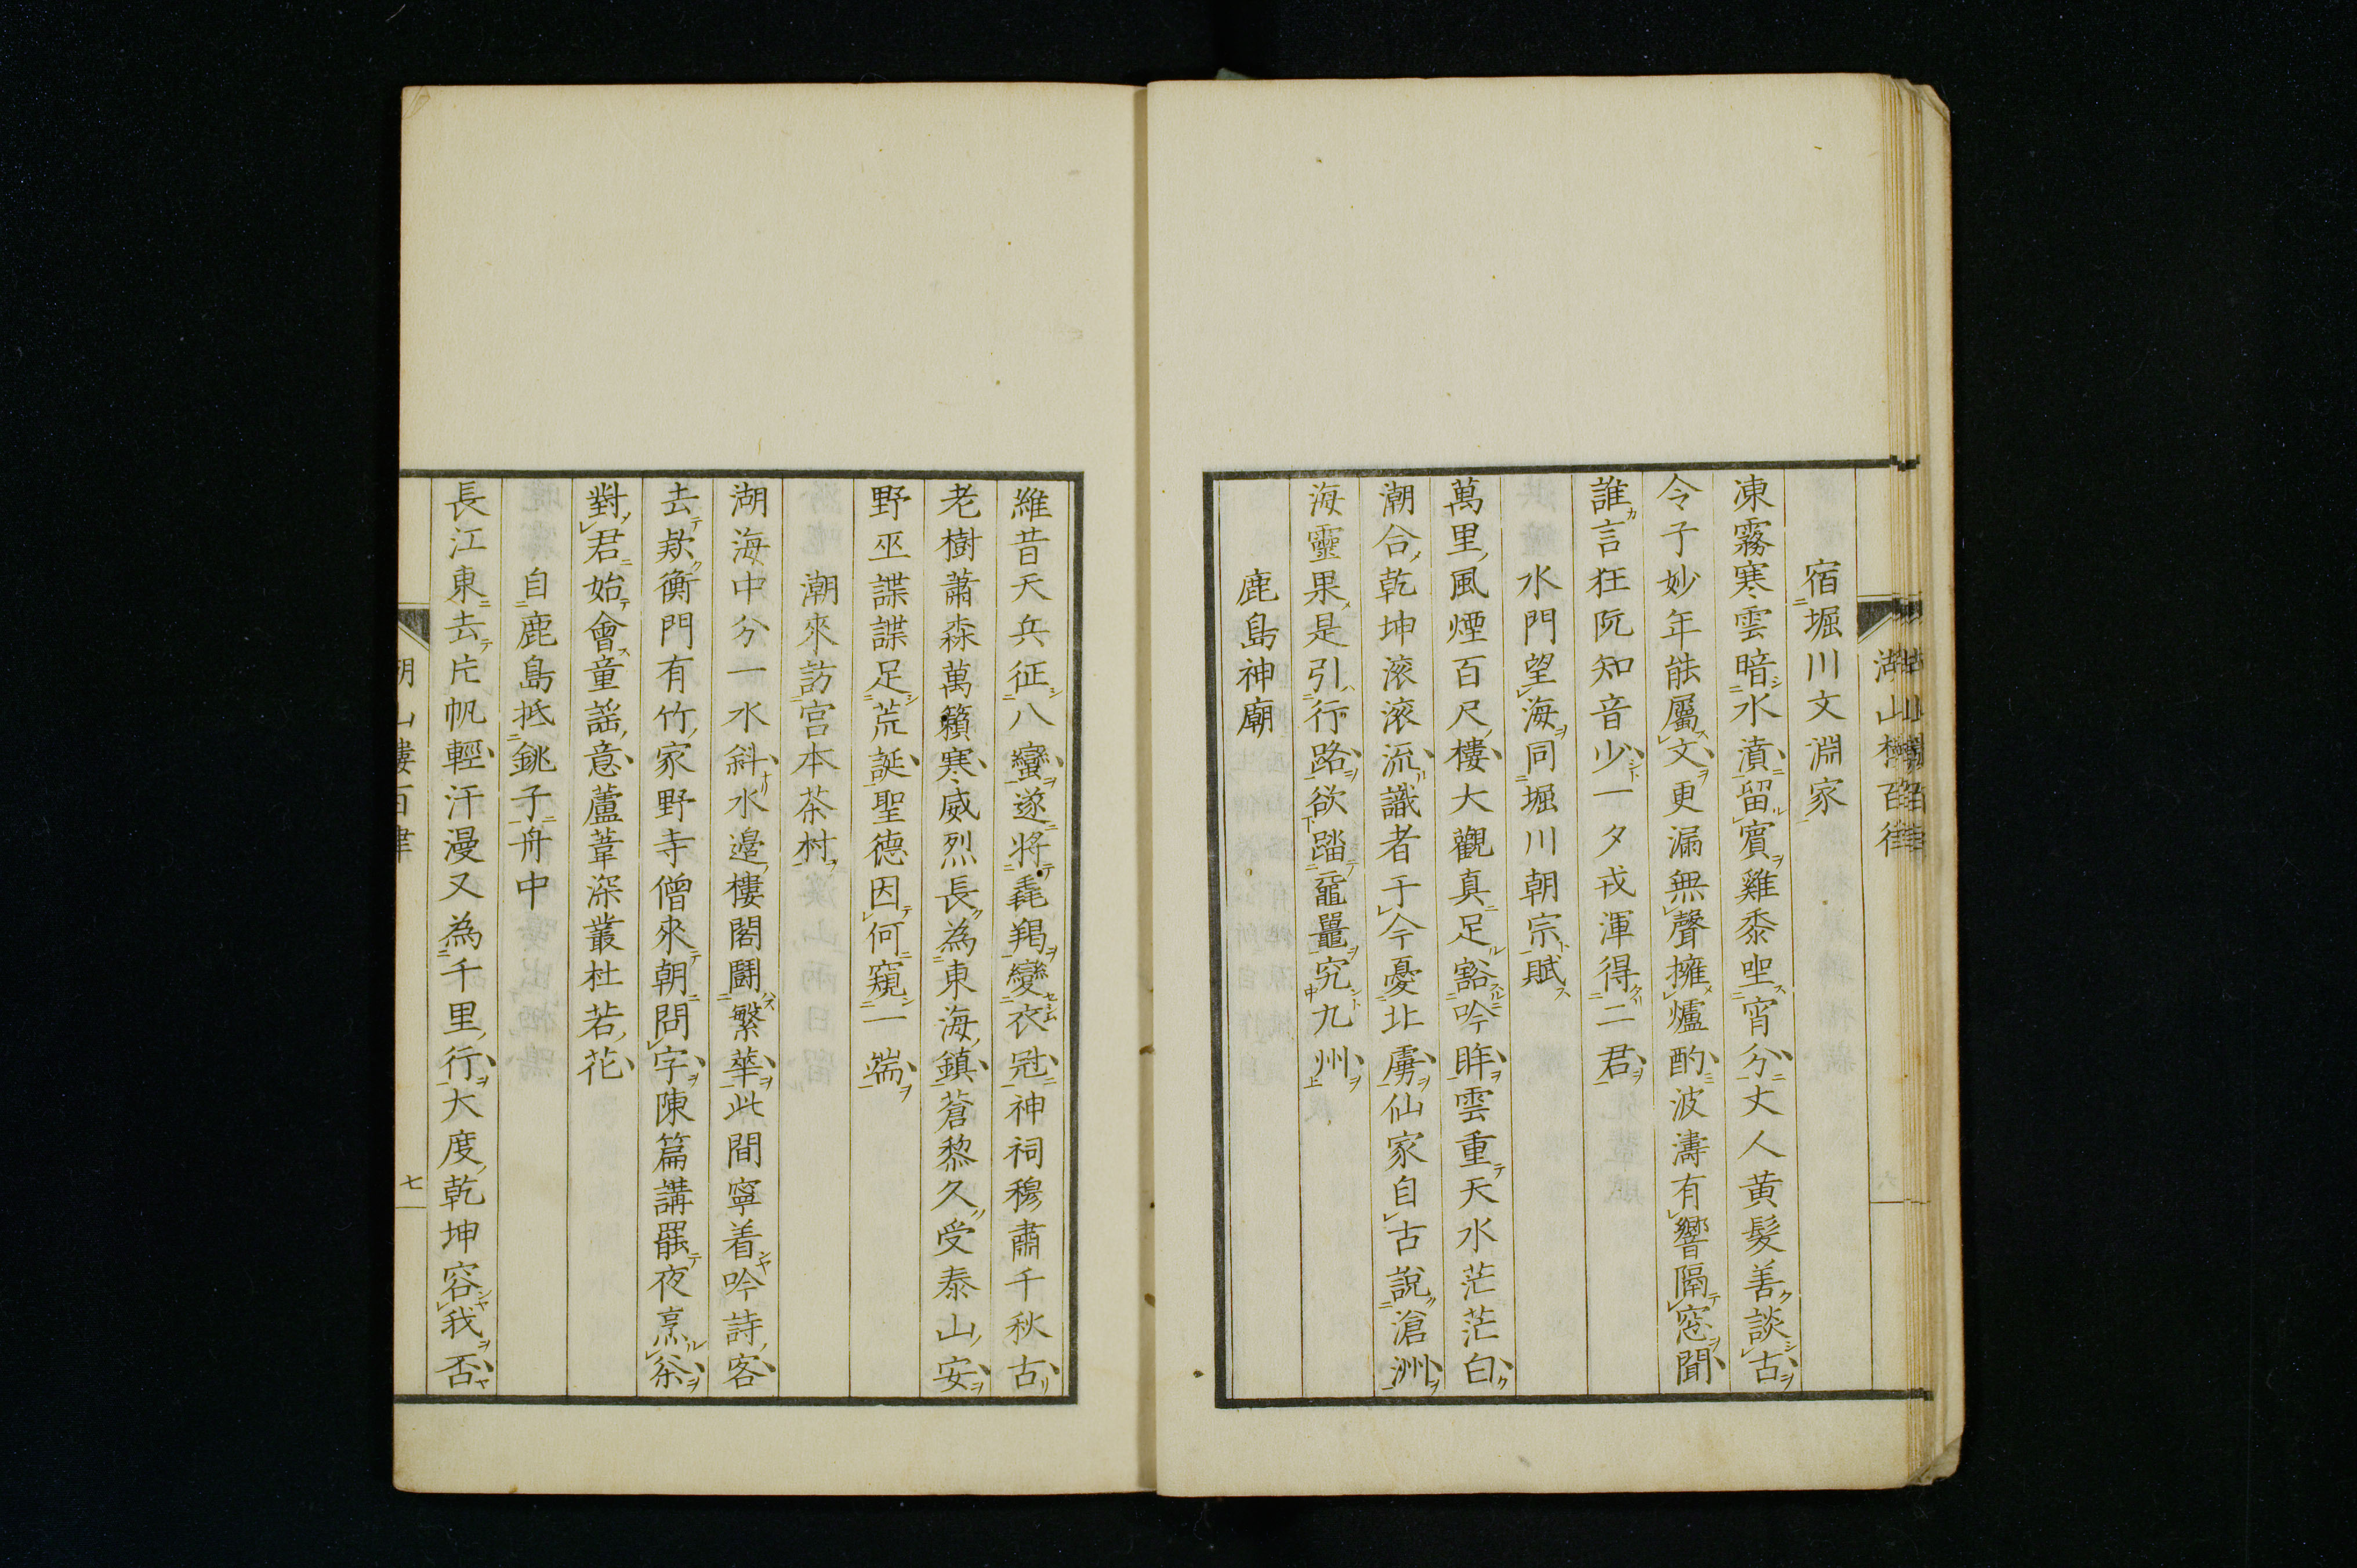 宿堀川文淵家
凍霧寒雲暗水濆留賓雞黍坐宵分丈人黄髮善談古
令子妙年能屬文更漏無聲擁爐酌波濤有響隔窓聞
誰言狂阮知音少一夕戎渾得二君
水門望海同堀川朝宗賦
萬里風煙百尺樓大觀真足豁吟眸雲重天水茫茫白
潮合乾坤滾滾流識者于今憂北虜仙家自古說滄洲
海靈果是引行路欲踏黿鼉究九州
鹿島神廟
維昔天兵征八蠻遂將毳羯變衣冠神祠穆肅千秋古
老樹蕭森萬籟寒威烈長為東海鎮蒼黎久受泰山安
野巫諜諜足荒誕聖德因何窺一端
潮來訪宮本茶村
湖海中分一水斜水邊樓閣鬪繁華此間寧着吟詩客
去歟衡門有竹家野寺僧來朝問字陳篇講罷夜烹茶
對君始會童謠意蘆葦深叢杜若花
自鹿島抵銚子舟中
長江東去片帆輕汗漫又為千里行大度乾坤容我否
七